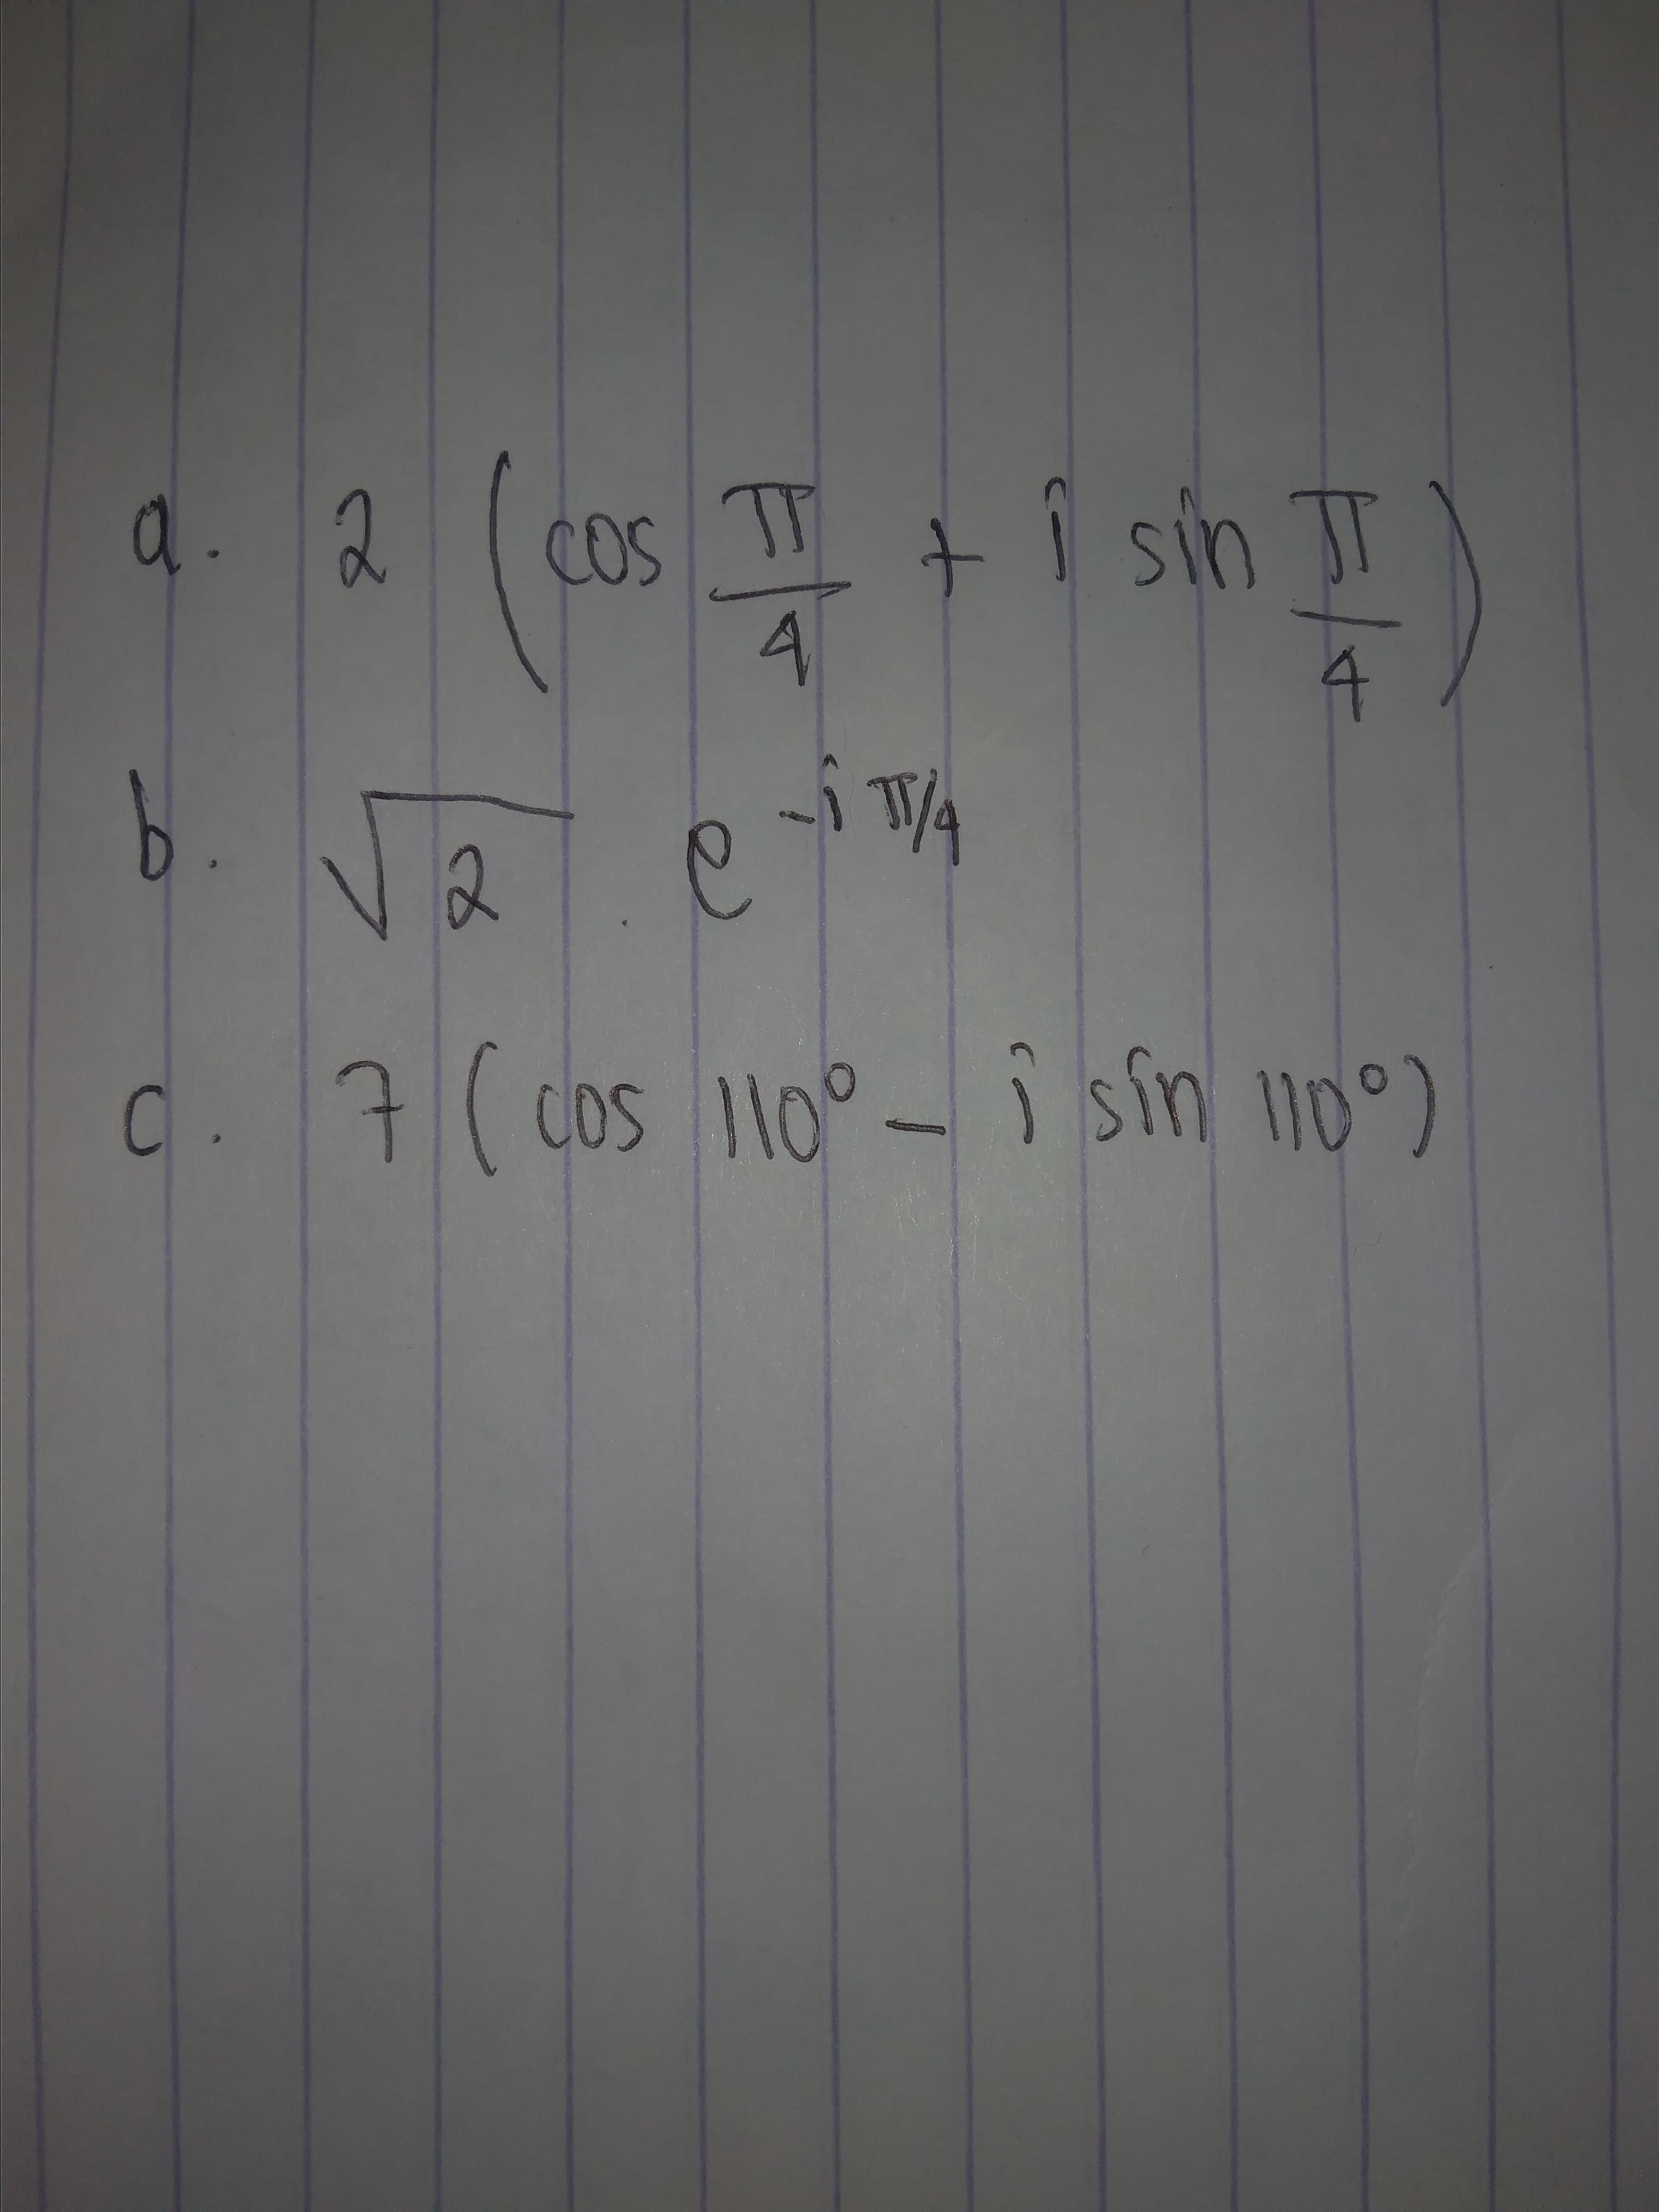 a. 2 (cos π/4 + i sin π/4)
b. √2 . e^(-i π/4)
c. 7 (cos 110° - i sin 110°)